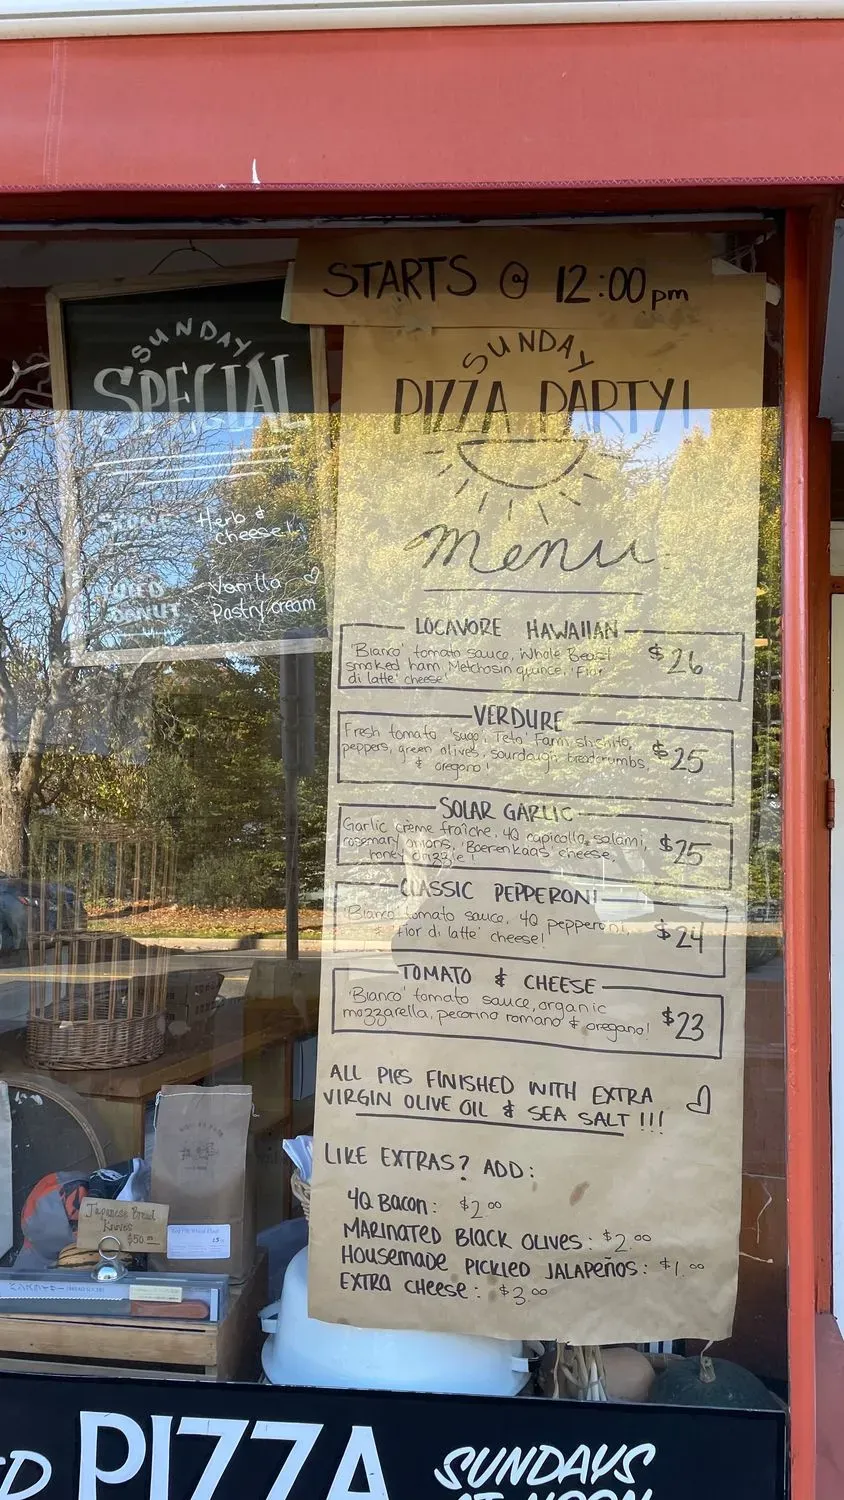 STARTS @ 12:00 pm
SUNDAY
PIZZA PARTY!
menu
LOCAVORE HAWAIIAN
'Bianco' tomato sauce, Whole Beast
smoked ham, Melchosin quince, 'Fior
di latte' cheese
$26
VERDURE
Fresh tomato 'sugo', Teto' Farm shishito,
peppers, green olives, sourdough breadcrumbs,
& oregano!
$25
SOLAR GARLIC
Garlic crème fraîche, 4Q capicollo, salami,
rosemary onions, 'Boerenkaas' cheese,
honey drizzle!
$25
CLASSIC PEPPERONI
'Bianco' tomato sauce, 4Q pepperoni,
& 'fior di latte' cheese!
$24
TOMATO & CHEESE
'Bianco' tomato sauce, organic
mozzarella, pecorino romano & oregano!
$23
ALL PIES FINISHED WITH EXTRA
VIRGIN OLIVE OIL & SEA SALT !!!
LIKE EXTRAS? ADD:
4Q BACON: $2.00
MARINATED BLACK OLIVES: $2.00
HOUSEMADE PICKLED JALAPEÑOS: $1.00
EXTRA CHEESE: $3.00
SUNDAY
SPECIAL
Herb &
cheese!
Vanilla
DONUT Pastry cream
Japanese Bread
Knives
$50
PIZZA
SUNDAYS
AT NOON